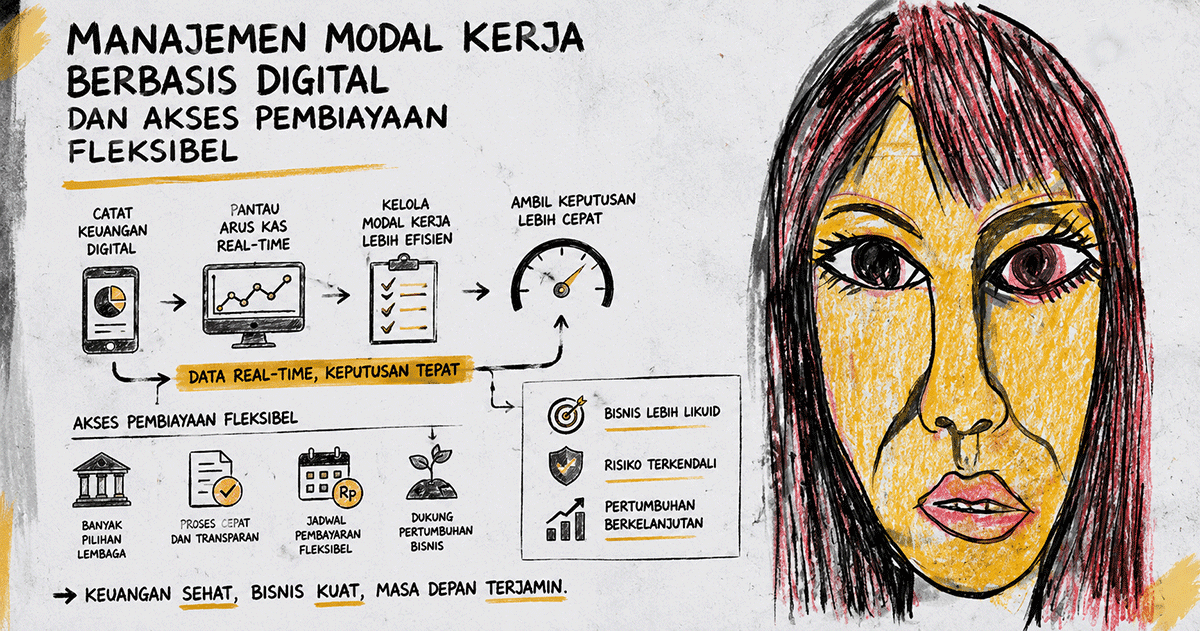 MANAJEMEN MODAL KERJA
BERBASIS DIGITAL
DAN AKSES PEMBIAYAAN
FLEKSIBEL
CATAT
KEUANGAN
DIGITAL
PANTAU
ARUS KAS
REAL-TIME
KELOLA
MODAL KERJA
LEBIH EFISIEN
AMBIL KEPUTUSAN
LEBIH CEPAT
DATA REAL-TIME, KEPUTUSAN TEPAT
AKSES PEMBIAYAAN FLEKSIBEL
BANYAK
PILIHAN
LEMBAGA
PROSES CEPAT
DAN TRANSPARAN
Rp
JADWAL
PEMBAYARAN
FLEKSIBEL
DUKUNG
PERTUMBUHAN
BISNIS
BISNIS LEBIH LIKUID
RISIKO TERKENDALI
PERTUMBUHAN
BERKELANJUTAN
→ KEUANGAN SEHAT, BISNIS KUAT, MASA DEPAN TERJAMIN.